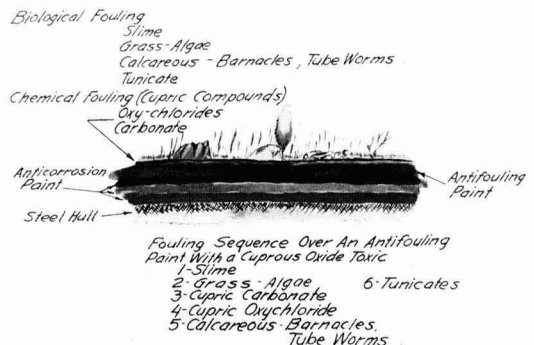 Biological Fouling
Slime
Grass-Algae
Calcareous - Barnacles, Tube Worms
Tunicate
Chemical Fouling (Cupric Compounds)
Oxy-chlorides
Carbonate
Anticorrosion
Paint
Antifouling
Paint
Steel Hull
Fouling Sequence Over An Antifouling
Paint With a Cuprous Oxide Toxic
1-Slime
2-Grass-Algae 6-Tunicates
3-Cupric Carbonate
4-Cupric Oxychloride
5-Calcareous-Barnacles,
Tube Worms